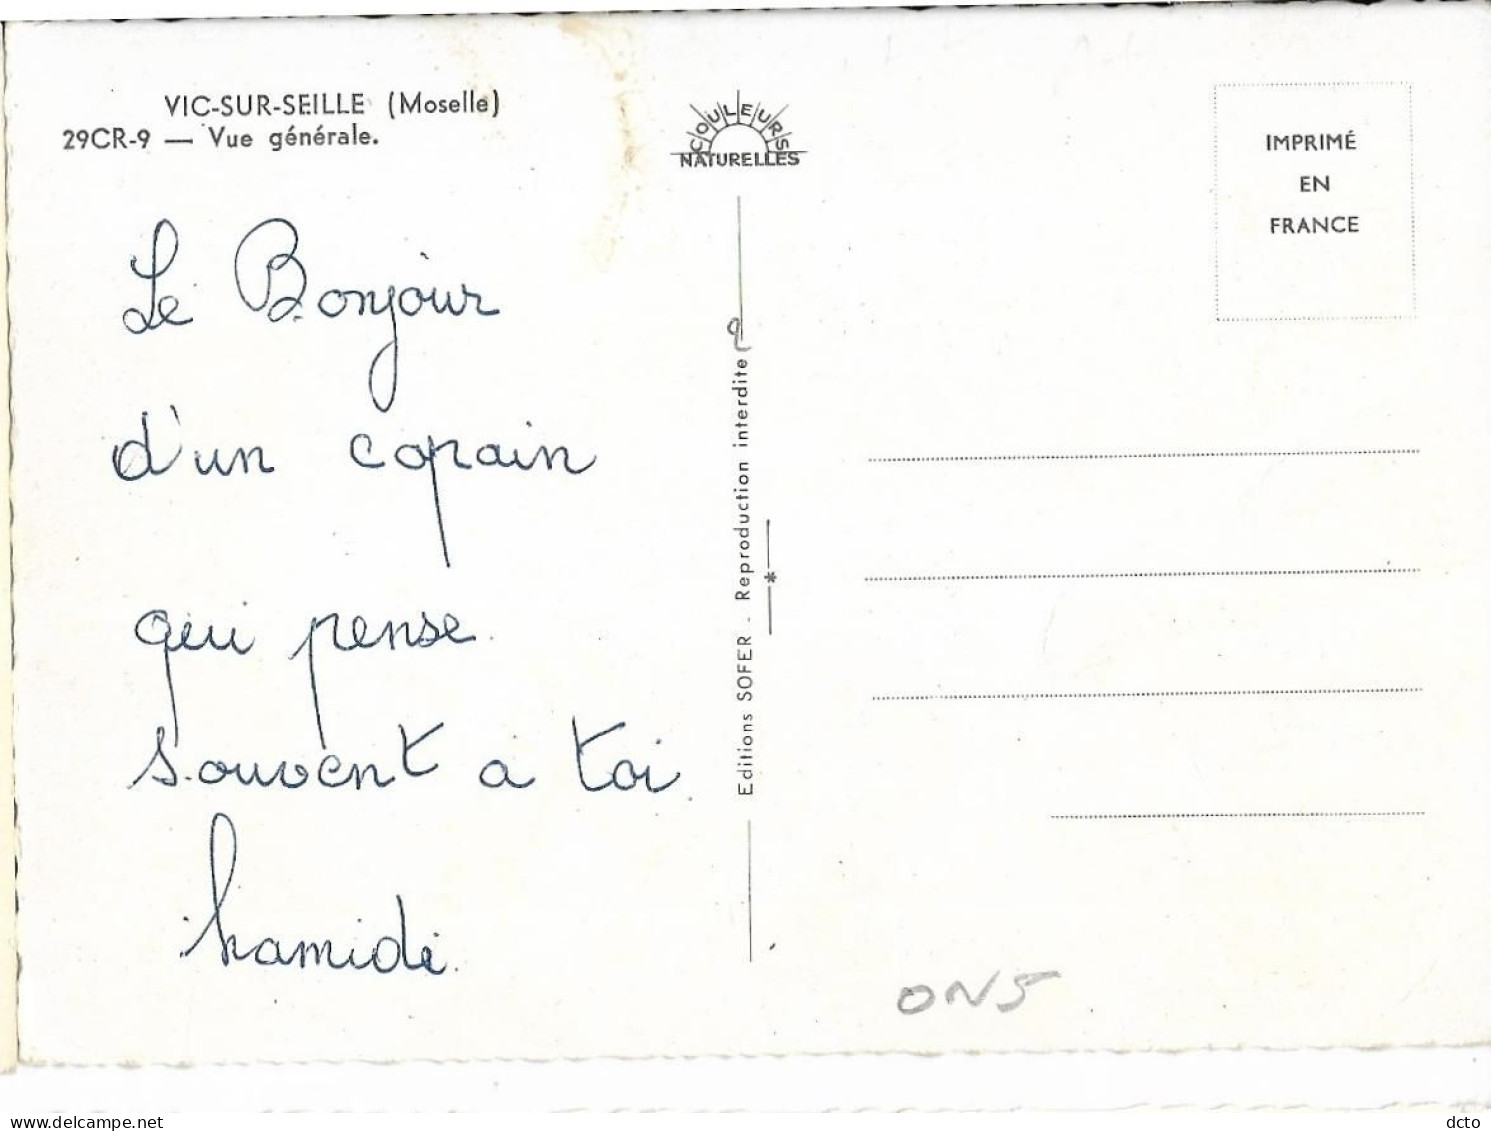 VIC-SUR-SEILLE (Moselle)
29CR-9 — Vue générale.
Le Bonjour
d'un copain
qui pense
souvent a toi
hamidi
COULEURS
NATURELLES
Editions SOFER . Reproduction interdite
*
IMPRIMÉ
EN
FRANCE
www.delcampe.net
dcto